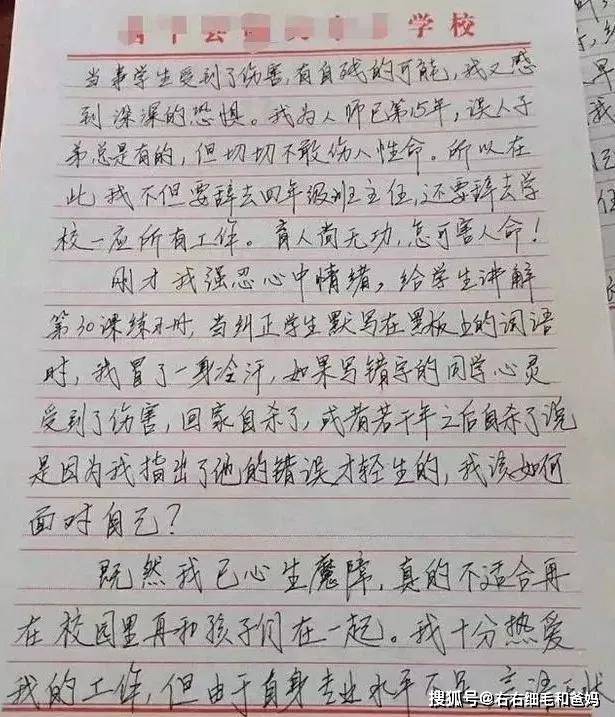 学校
当事学生受到了伤害,有自残的可能,我又感
到深深的恐惧。我为人师已第15年,误人子
弟总是有的,但切切不敢伤人性命。所以在
此我不但要辞去四年级班主任,还要辞去学
校一应所有工作。育人尚无功,怎可害人命!
刚才我强忍心中情绪,给学生讲解
第30课练习时,当纠正学生默写在黑板上的词语
时,我冒了一身冷汗,如果写错字的同学心灵
受到了伤害,回家自杀了,或者若干年之后自杀了说
是因为我指出了他的错误才轻生的,我该如何
面对自己?
既然我已心生魔障,真的不适合再
在校园里再和孩子们在一起。我十分热爱
我的工作,但由于自身专业水平不足,
搜狐号@右右细毛和爸妈